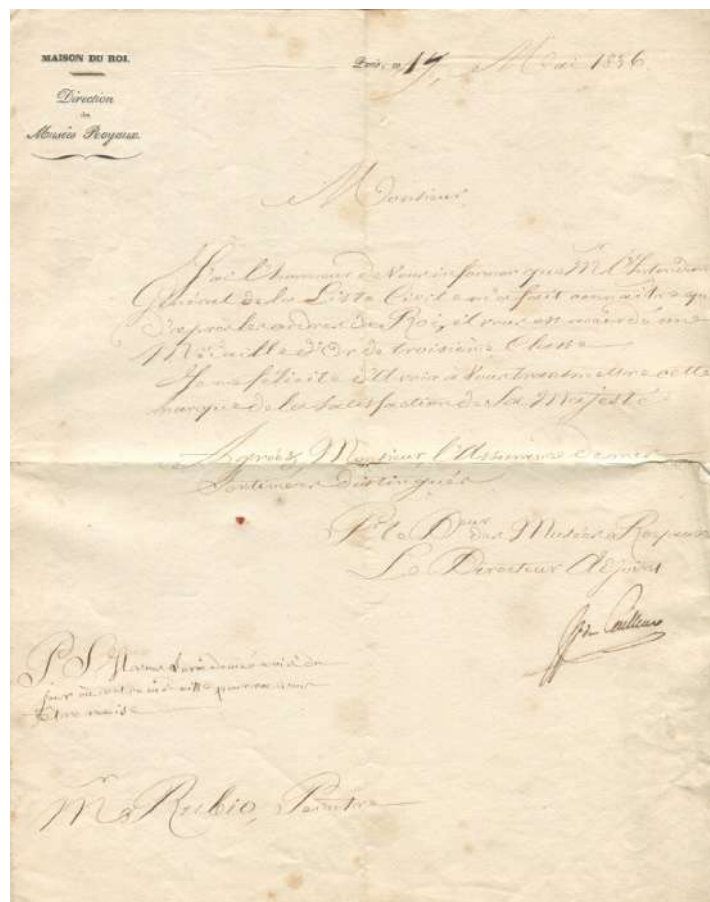 MAISON DU ROI.
Direction
des
Musées Royaux.
Paris, le 17, Mai 1836.
Monsieur
J'ai l'honneur de Vous informer que Mr. l'Intendant
Général de la Liste Civile m'a fait connaître que
d'après les ordres du Roi, il vous est accordé une
Médaille d'Or de troisième Classe
Je me félicite d'Avoir à Vous transmettre cette
marque de la Satisfaction de Sa Majesté
Agréez, Monsieur, l'Assurance de mes
Sentimens distingués
Pr. le Dteur des Musées Royaux
Le Directeur Adjoint
P. S. Il vous sera donné avis du
jour où cette médaille pourra vous
être remise
Mr Rubio, Peintre